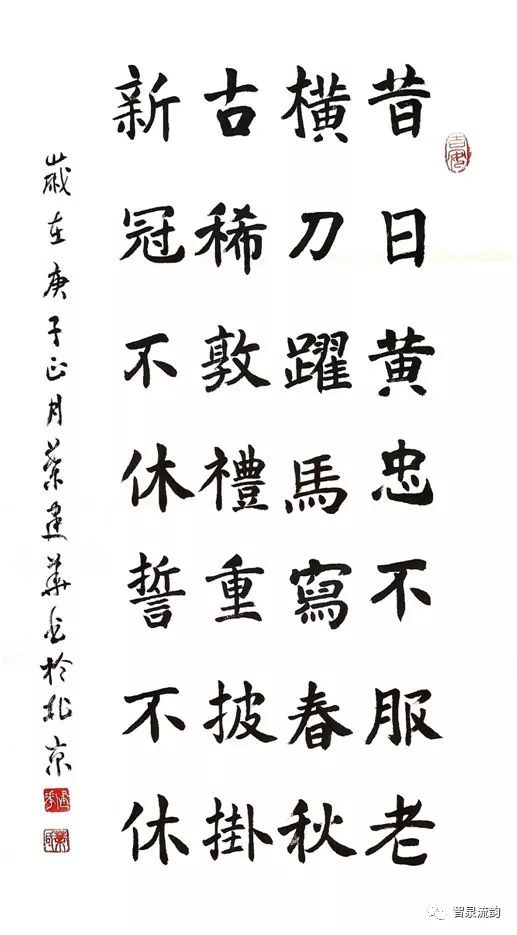 昔日黄忠不服老
橫刀躍馬寫春秋
古稀敦禮重披掛
新冠不休誓不休
歲在庚子正月蔡建華書於北京
智泉流韵